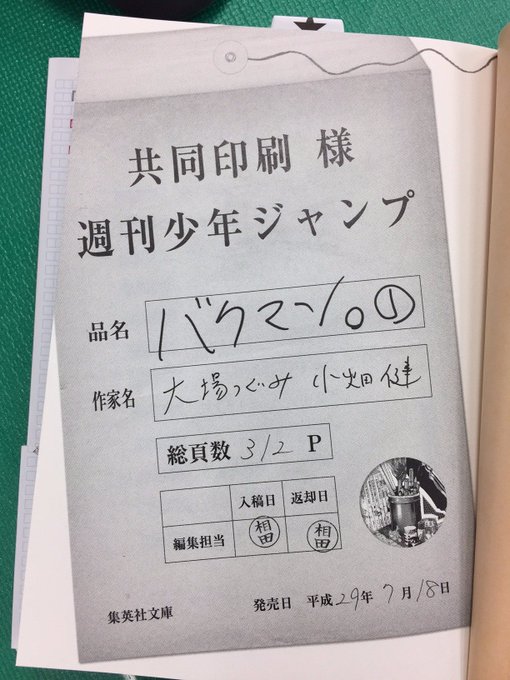 共同印刷 様
週刊少年ジャンプ
品名 バクマン。①
作家名 大場つぐみ 小畑健
総頁数 312 P
入稿日 返却日
編集担当 相田 相田
集英社文庫 発売日 平成29年7月18日